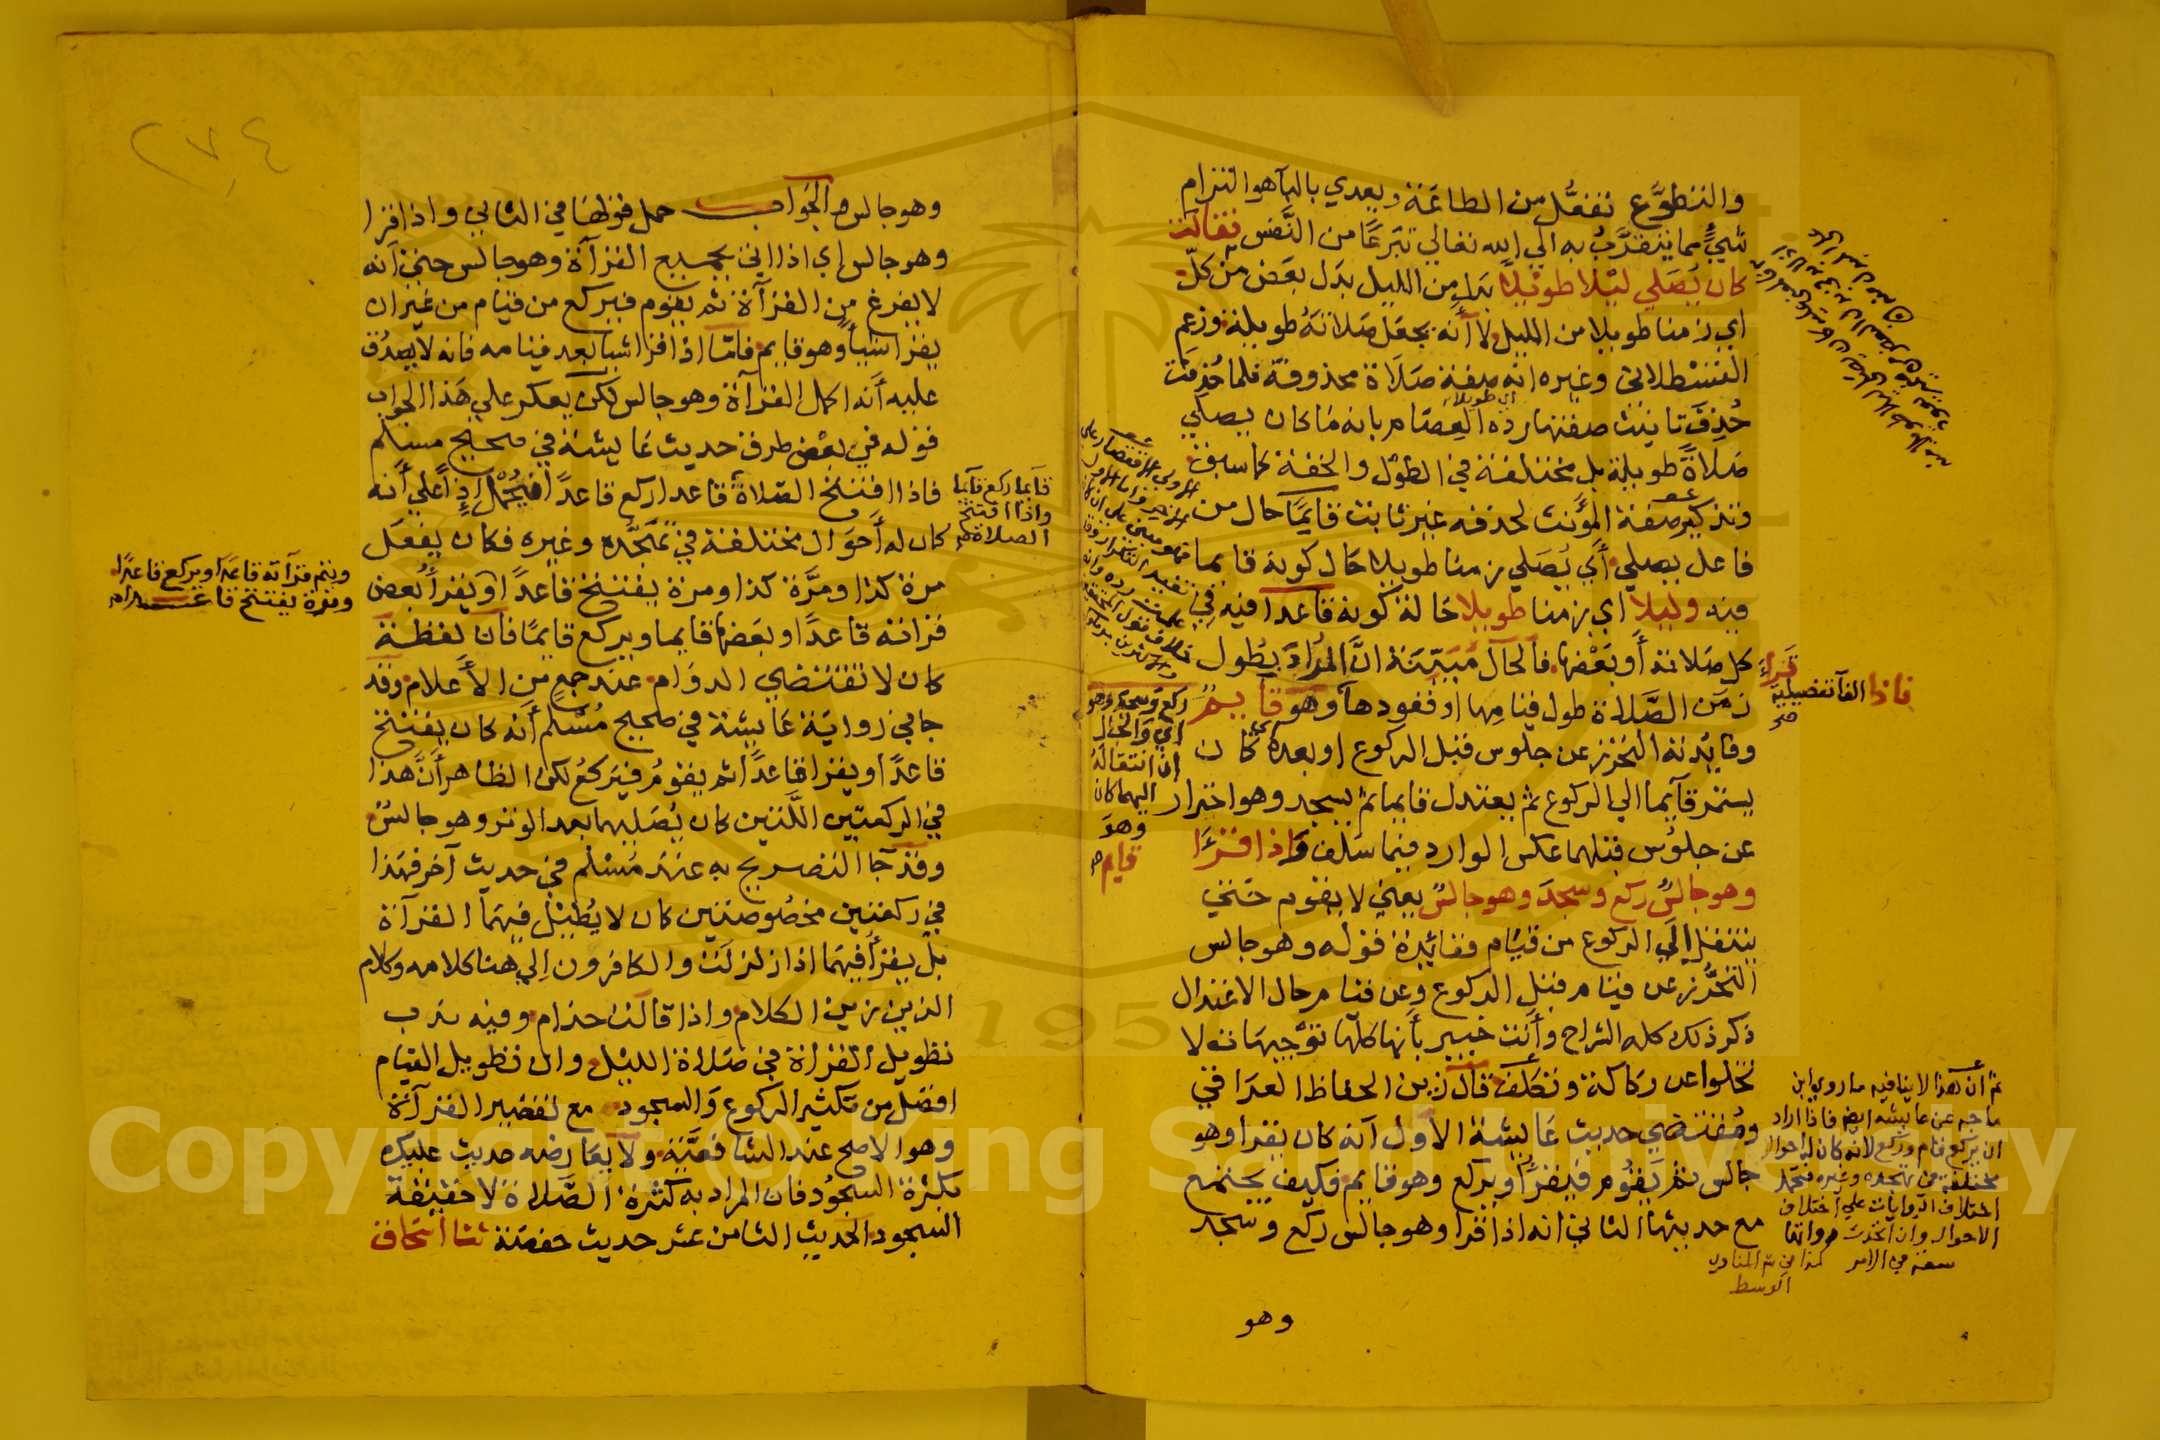 والتطوع تفعل من الطاعة ويعدي بالبآ هو التزام
شيء مما يتقرب به الي الله تعالي تبرعا من النفس فقالت
كان يصلي ليلا طويلا بدل من الليل بدل بعض من كل
اي زمنا طويلا من الليل لا انه يجعل صلاته طويلة وزعم
القسطلاني وغيره انه صفة صلاة محذوفة فلما حذفت
حذف تانيث صفتها رده العصام بانه ما كان يصلي
صلاة طويلة بل مختلفة في الطول والخفة كما سبق
وتذكير صفة المؤنث لحذفه غير ثابت قايما حال من
فاعل يصلي أي يصلي زمنا طويلا حال كونه قايما
فيه وليلا اي زمنا طويلا حالة كونه قاعدا فيه في
كل صلاته أو بعضها فالحال مبينة ان المراد بطول
زمن الصلاة طول قيامها او قعودها وهو قايم
وفايدته التحرز عن جلوس قبل الركوع او بعده كان
يستمر قآيما الي الركوع ثم يعتدل قايما ثم يسجد وهو احتراز
عن جلوس قبلهما عكس الوارد فيما سلف واذا قرا
وهو جالس ركع وسجد وهو جالس يعني لا يقوم حتي
ينتقل إلي الركوع من قيام ففائدة قوله وهو جالس
التحرز عن قيام قبل الركوع وعن قيام حال الاعتدال
ذكر ذلك كله الشراح وأنت خبير بأنها كلها توجيهاته لا
تخلوا عن ركاكة وتكلف قال زين الحفاظ العراقي
ومقتضي حديث عايشة الأول أنه كان يقرا وهو
جالس ثم يقوم فيقرأ ويركع وهو قايم فكيف يجتمع
مع حديثها الثاني انه اذا قرا وهو جالس ركع وسجد
وهو
فاذا الفآ تفضيلية
قراءَ
صح
ركع وسجد وهو
اي والحال
ان انتقاله
اليهما كان
وهو
قيام
ثم ان هذا لا ينافيه ما روي ابن
ماجه عن عايشة ايض فاذا اراد
ان يركع قام وركع لانه كان له احوال
مختلفة في تهجده وغيره فتحمل
اختلاف الروايات علي اختلاف
الاحوال وان اتحدت رواتها
سعة في الامر كذا في ش المناوي
الوسط
٢٧٤
وهو جالس الجواب حمل قولها في الثاني واذا قرا
وهو جالس اي اذا اتي بجميع القرآة وهو جالس حتي انه
لا يفرغ من القرآة ثم يقوم فيركع من قيام من غير ان
يقرا شيأ وهو قايم فامّا اذا قرا شيا بعد قيامه فانه لا يصدق
عليه أنه اكمل القرآة وهو جالس لكن يعكر علي هذا الجواب
قوله في بعض طرق حديث عايشة في صحيح مسلم
فاذا افتتح الصلاة قاعدا ركع قاعدا فيحمل اذا علي أنه
كان له أحوال مختلفة في تهجده وغيره فكان يفعل
مرة كذا ومرة كذا ومرة يفتتح قاعدا ويقرأ بعض
قراته قاعدا وبعضها قايما ويركع قايما فان لفظة
كان لا تقتضي الدوام عند جمع من الأعلام وقد
جا في رواية عايشة في صحيح مسلم أنه كان يفتتح
قاعدا ويقرا قاعدا ثم يقوم فيركع لكن الظاهر أن هذا
في الركعتين اللتين كان يصليهما بعد الوتر وهو جالس
وقد جآ التصريح به عند مسلم في حديث آخر فهذا
في ركعتين مخصوصتين كان لا يطيل فيهما القرآة
بل يقرأ فيهما اذا زلزلت والكافرون الي هنا كلامه وكلام
الزين زين الكلام واذا قالت حذام وفيه ندب
تطويل القراة في صلاة الليل وان تطويل القيام
افضل من تكثير الركوع والسجود مع تقصير القرآة
وهو الاصح عند الشافعية ولا يعارضه حديث عليك
بكثرة السجود فان المراد به كثرة الصلاة لا حقيقة
السجود الحديث الثامن عشر حديث حفصة ثنا اسحاق
قآيما ركع قآيما
واذا افتتح
الصلاة
ويتم قرآته قاعدا ويركع قاعدا
ومرة يفتتح قا
Copyright © King Saud University
195